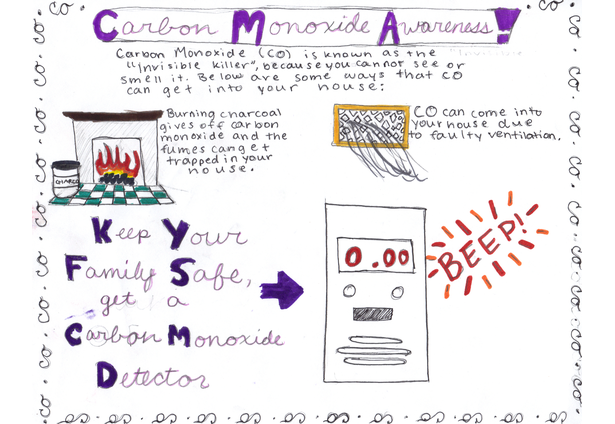 Carbon Monoxide Awareness!
Carbon Monoxide (CO) is known as the
"Invisible Killer", because you cannot see or
smell it. Below are some ways that CO
can get into your house:
Burning charcoal
gives off carbon
monoxide and the
fumes can get
trapped in your
house.
CO can come into
your house due
to faulty ventilation.
Keep Your
Family Safe,
get a
Carbon Monoxide
Detector
0.00
BEEP!
co · co · co · co · co · co · co · co · co · co